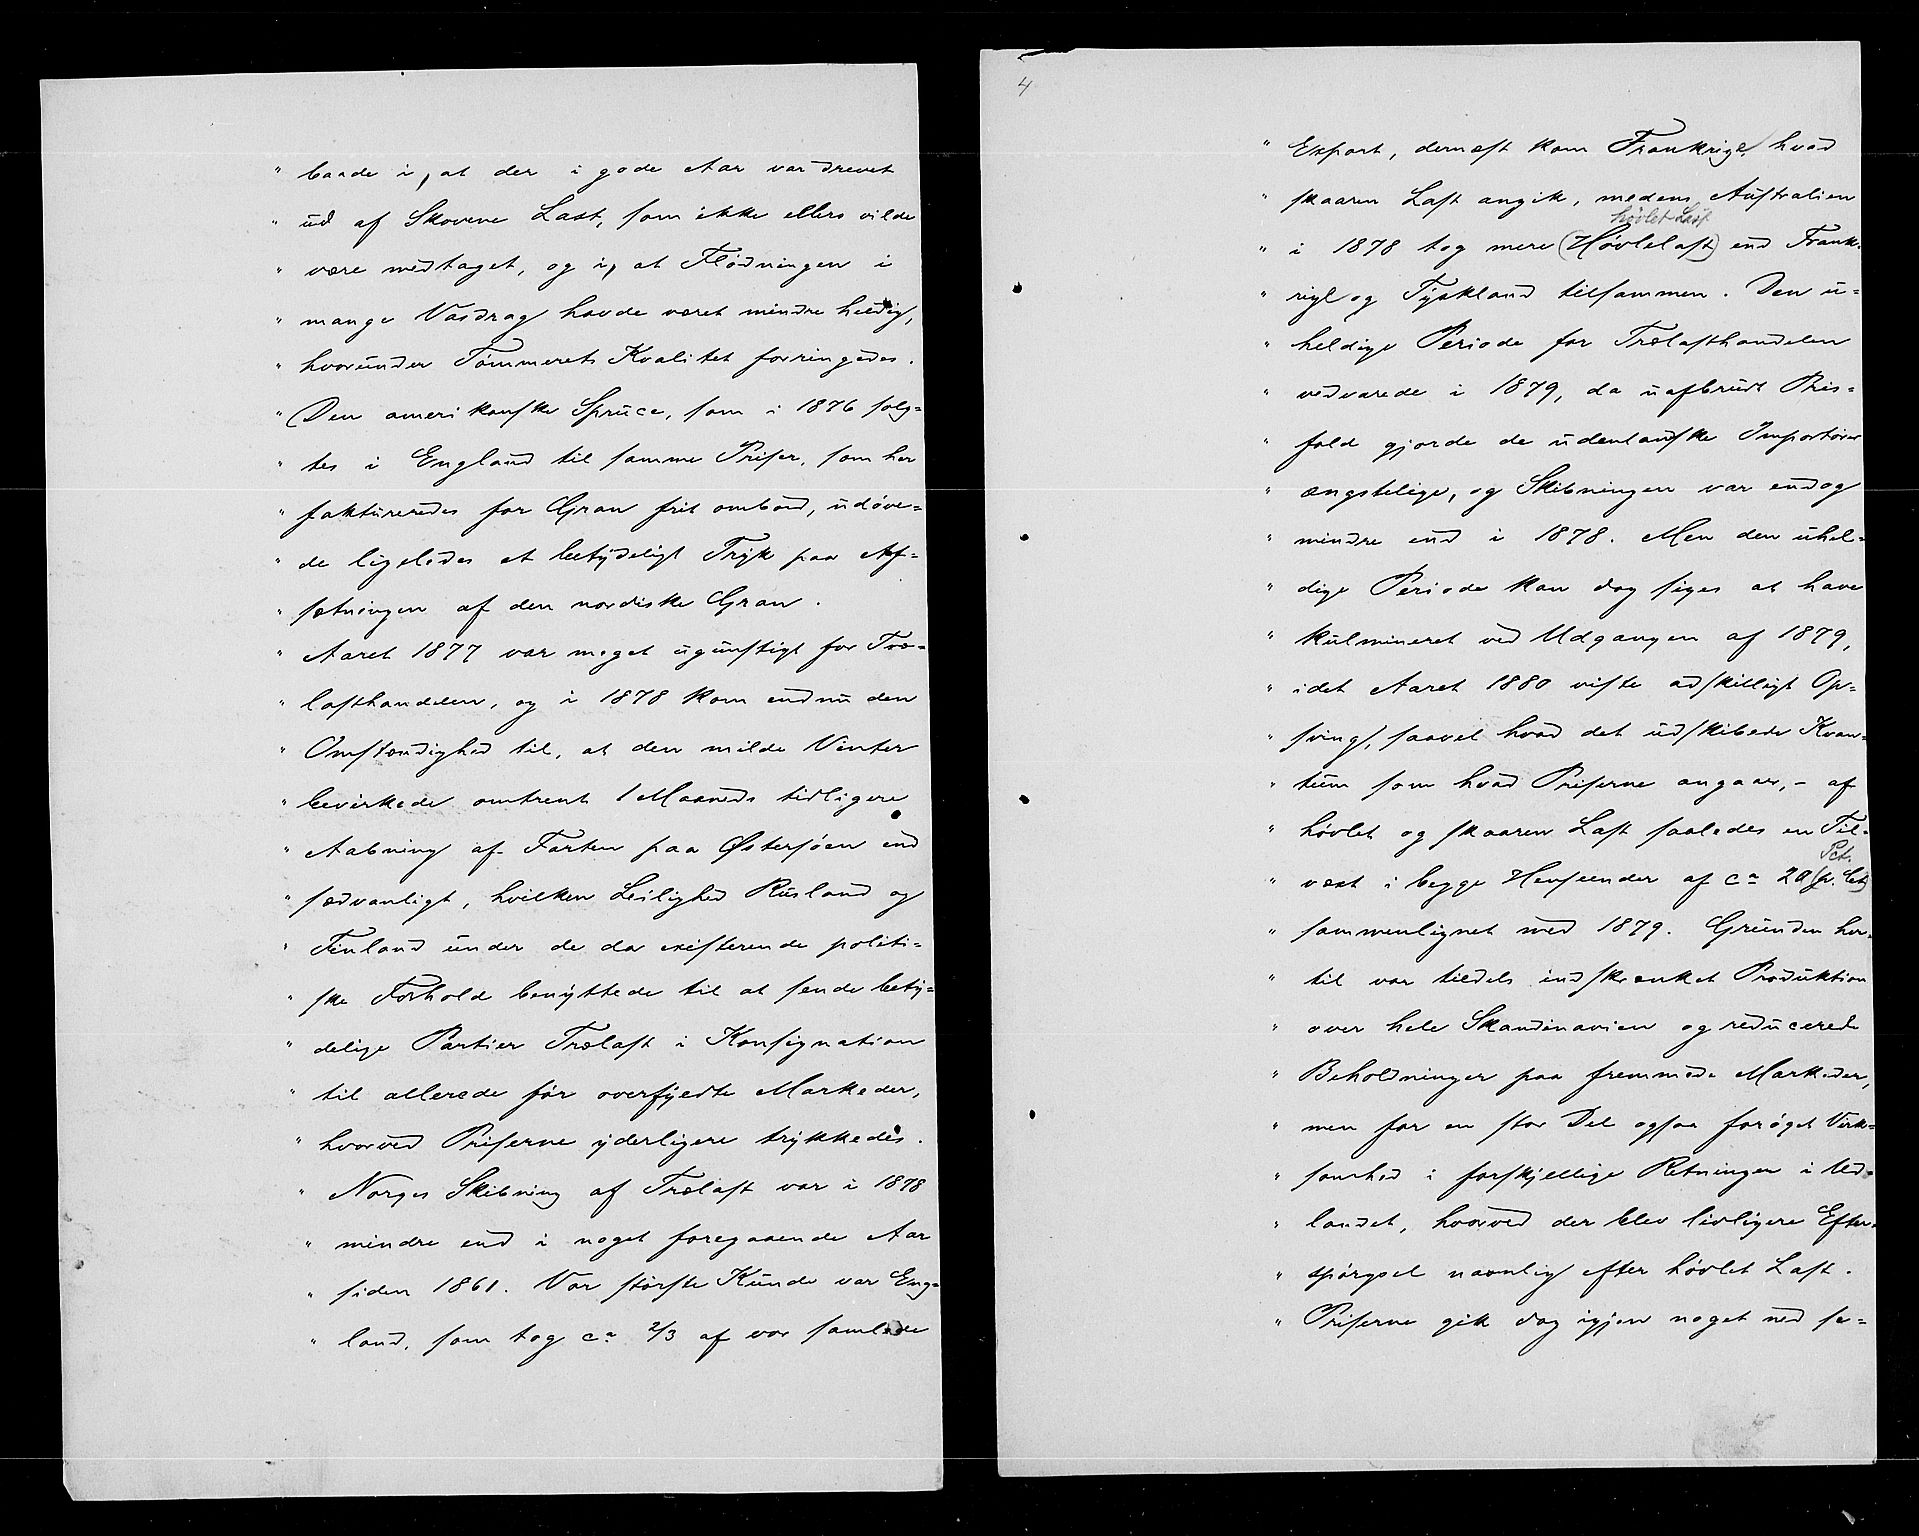 " baade i, at der i gode Aar var drevet
" ud af Skovene Last, som ikke ellers vilde
" være medtaget, og i, at Flødningen i
" mange Vasdrag havde været mindre heldig,
" hvorunder Tømmerets Kvalitet forringedes.
" Den amerikanske Spruce, som i 1876 solg=
" tes i England til samme Priser, som her
" faktureredes for Gran frit ombord, udøve=
" de ligeledes et betydeligt Tryk paa Af=
" sætningen af den nordiske Gran.
" Aaret 1877 var meget ugunstigt for Træ=
" lasthandelen, og i 1878 kom endnu den
" Omstændighed til, at den milde Vinter
" bevirkede omtrent 1 Maaneds tidligere
" Aabning af Farten paa Østersøen end
" sædvanligt, hvilken Leilighed Rusland og
" Finland under de da existerende politi=
" ske Forhold benyttede til at sende bety=
" delige Partier Trælast i Konsignation
" til allerede før overfyldte Markeder,
" hvorved Priserne yderligere trykkedes.
" Norges Skibning af Trælast var i 1878
" mindre end i noget foregaaende Aar
" siden 1861. Vor største Kunde var Eng=
" land, som tog ca 2/3 af vor samlede
4
" Export, dernæst kom Frankrige, hvad
" skaaren Last angik, medens Australien
høvlet Last
" i 1878 tog mere (Høvlelast) end Frank=
" rige og Tyskland tilsammen. Den u=
" heldige Periode for Trælasthandelen
" vedvarede i 1879, da uafbrudt Pris=
" fald gjorde de udenlandske Importører
" ængstelige, og Skibningen var endog
" mindre end i 1878. Men den uhel=
" dige Periode kan dog siges at have
" kulmineret ved Udgangen af 1879,
" idet Aaret 1880 viste adskilligt Op=
" sving, saavel hvad det udskibede Kvan=
" tum som hvad Priserne angaar, - af
" høvlet og skaaren Last saaledes en Til=
Pct.
" væxt i begge Henseender af ca 20 (p. Ct)
" sammenlignet med 1879. Grunden her=
" til var tildels indskrænket Produktion
" over hele Skandinavien og reducerede
" Beholdninger paa fremmede Markeder,
" men for en stor Del ogsaa forøget Virk=
" somhed i forskjellige Retninger i Ud=
" landet, hvorved der blev livligere Efter=
" spørgsel navnlig efter høvlet Last.
" Priserne gik dog igjen noget ned se=